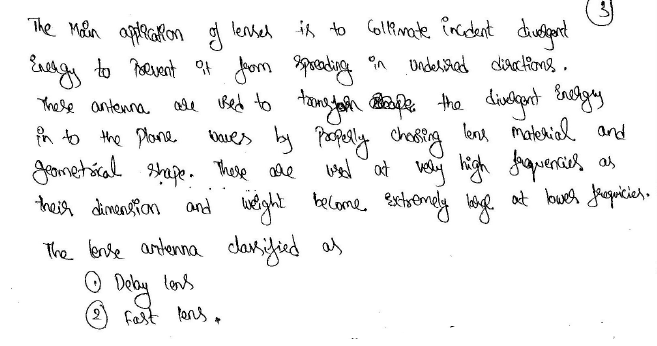 3
The Main application of lenses is to Collimate incident divergent
Energy to Prevent it from spreading in undesired directions.
These antenna are used to transform the divergent Energy
in to the plane waves by Properly choosing lens material and
geometrical shape. These are used at very high frequencies as
their dimension and weight become Extremely large at lower frequicies.
The lense antenna classified as
① Delay lens
② Fast lens.